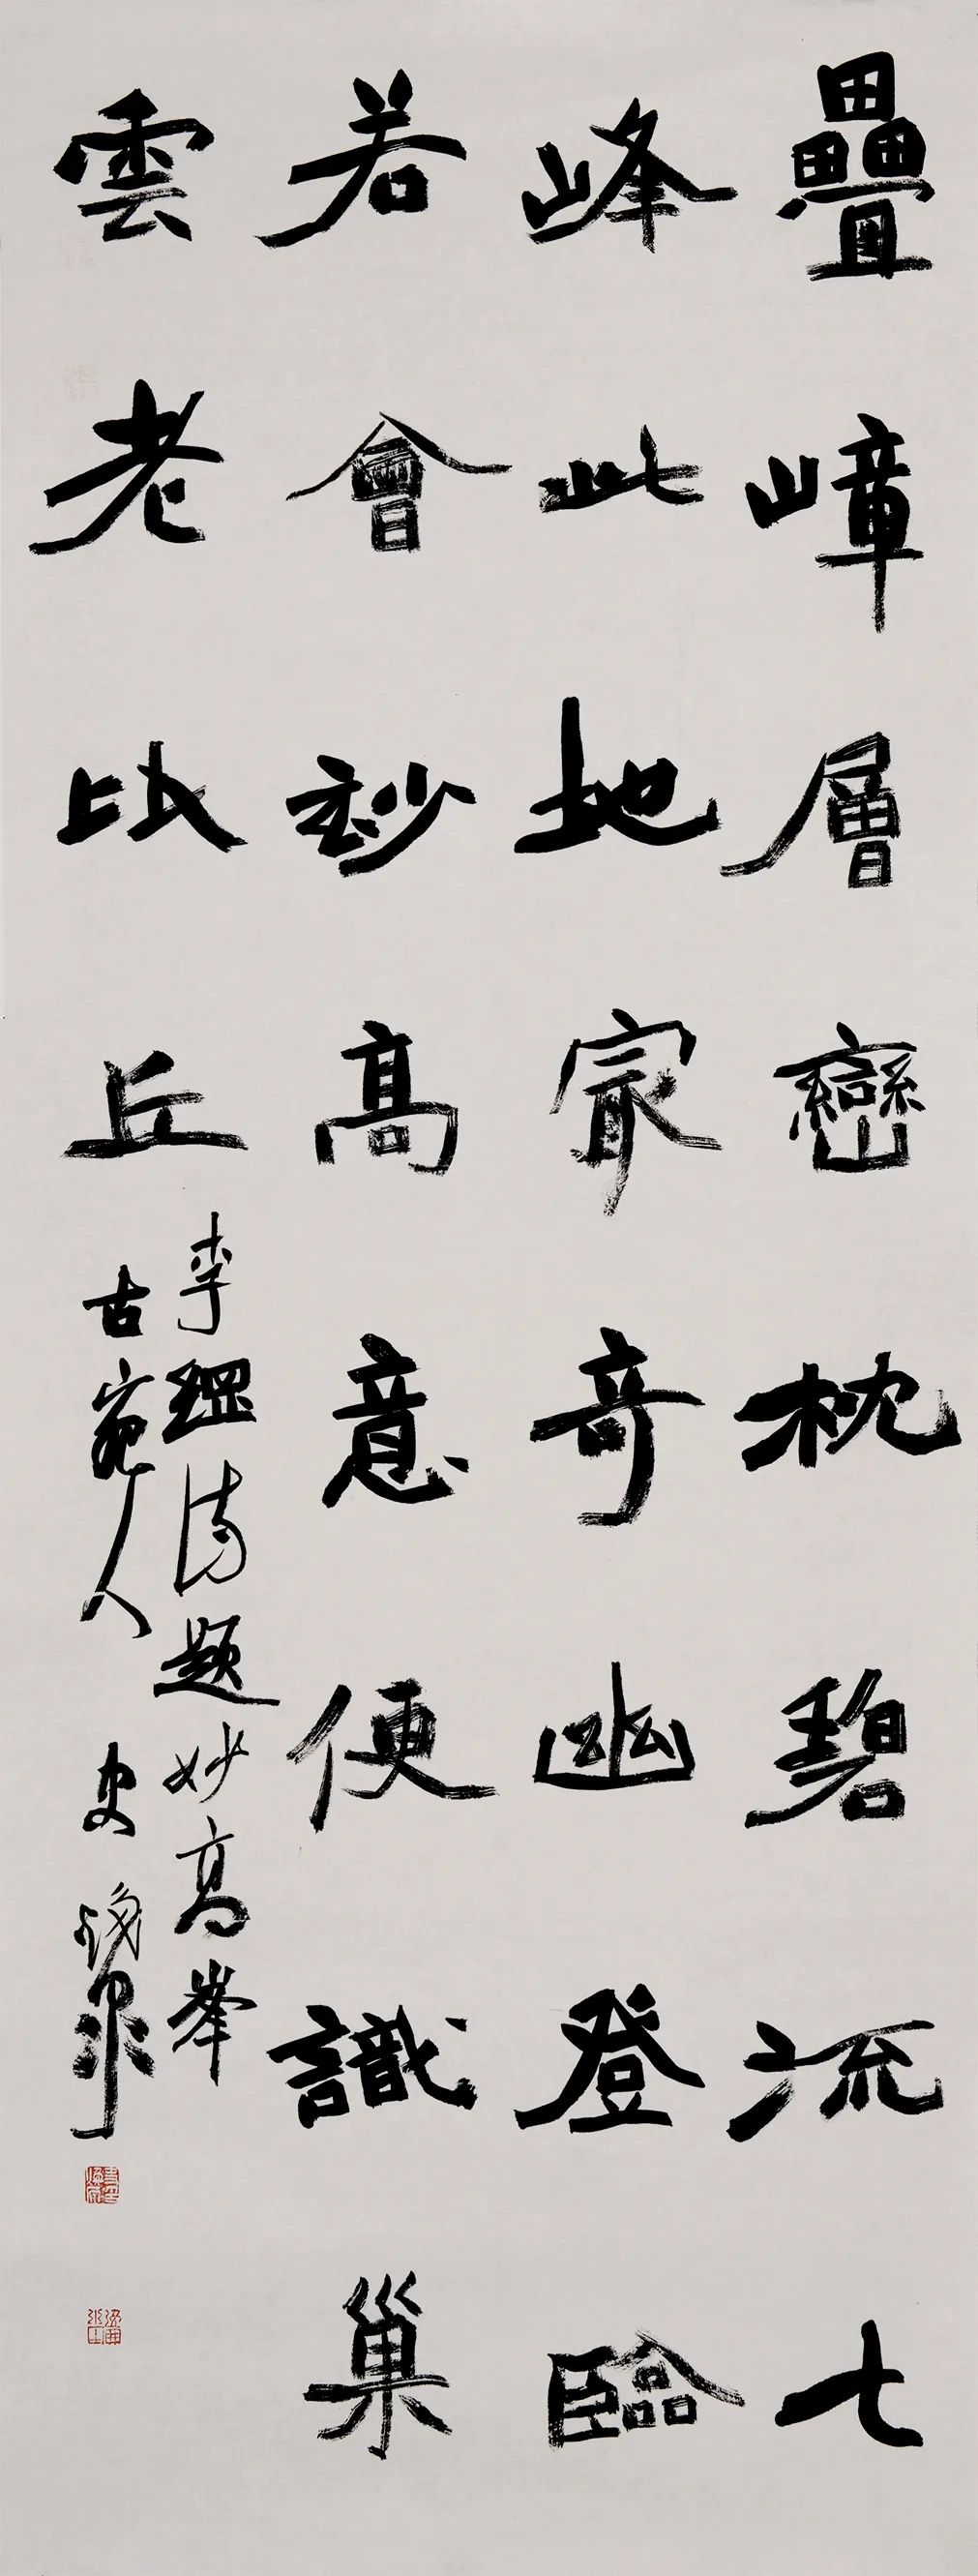 疊嶂層巒枕碧流七
峰此地冣奇幽登臨
若會玅高意便識巢
雲老比丘
李堒詩題妙高峯
古宛人史